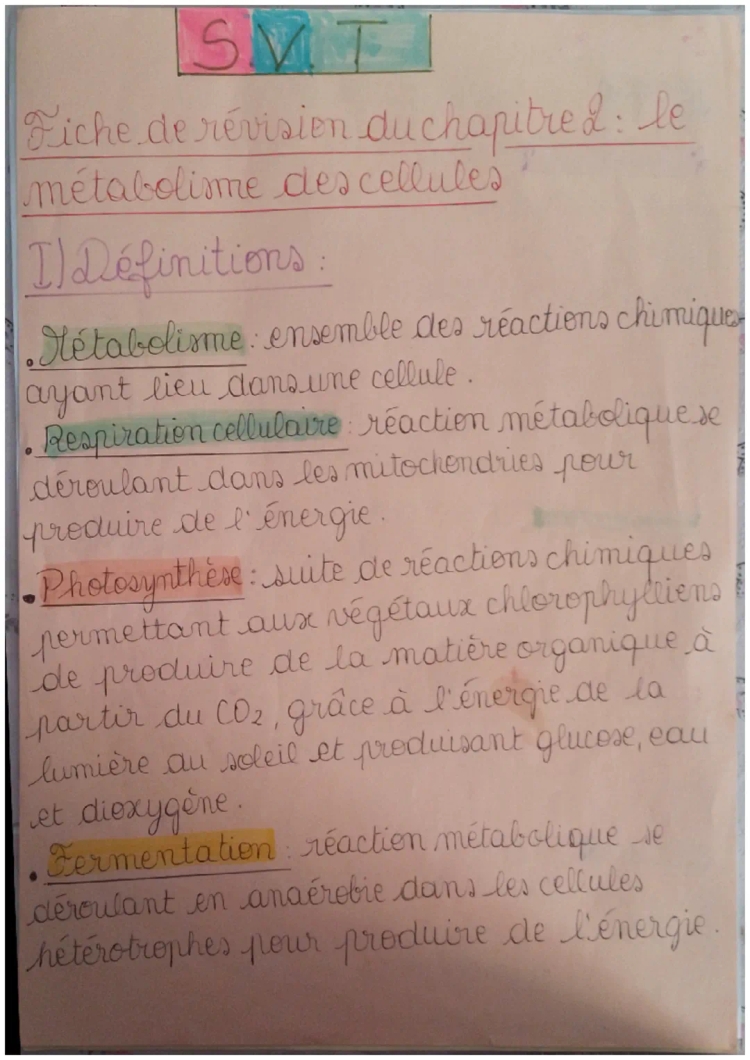 S.V.T
Fiche de révision du chapitre 2 : le
métabolisme des cellules
I) Définitions :
. Métabolisme : ensemble des réactions chimiques
ayant lieu dans une cellule.
. Respiration cellulaire : réaction métabolique se
déroulant dans les mitochondries pour
produire de l'énergie.
. Photosynthèse : suite de réactions chimiques
permettant aux végétaux chlorophylliens
de produire de la matière organique à
partir du CO₂, grâce à l'énergie de la
lumière au soleil et produisant glucose, eau
et dioxygène.
. Fermentation : réaction métabolique se
déroulant en anaérobie dans les cellules
hétérotrophes pour produire de l'énergie.